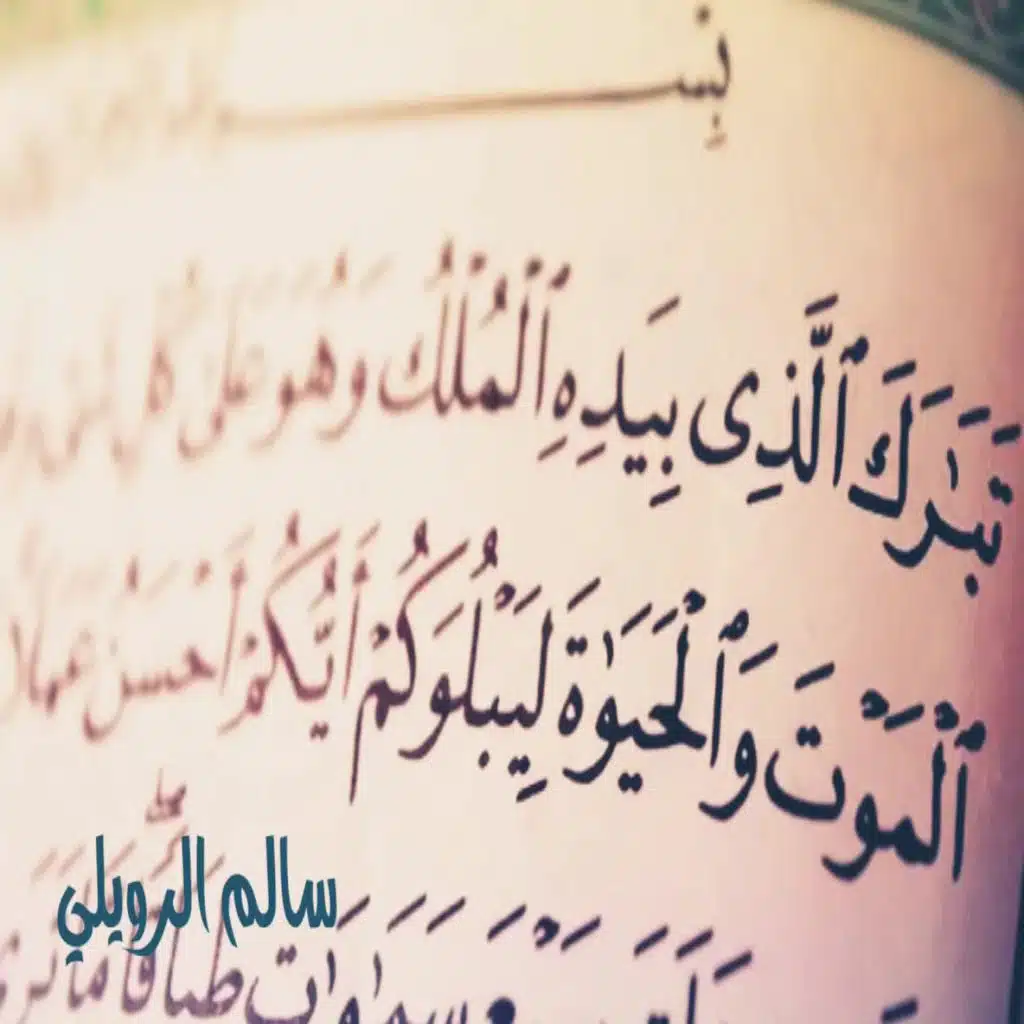 بِسْـ
تَبَٰرَكَ ٱلَّذِى بِيَدِهِ ٱلْمُلْكُ وَهُوَ عَلَىٰ كُلِّ
ٱلْمَوْتَ وَٱلْحَيَوٰةَ لِيَبْلُوَكُمْ أَيُّكُمْ أَحْسَنُ عَمَلًا
سَمَٰوَٰتٍ طِبَاقًا مَّا تَرَىٰ
سالم الرويلي